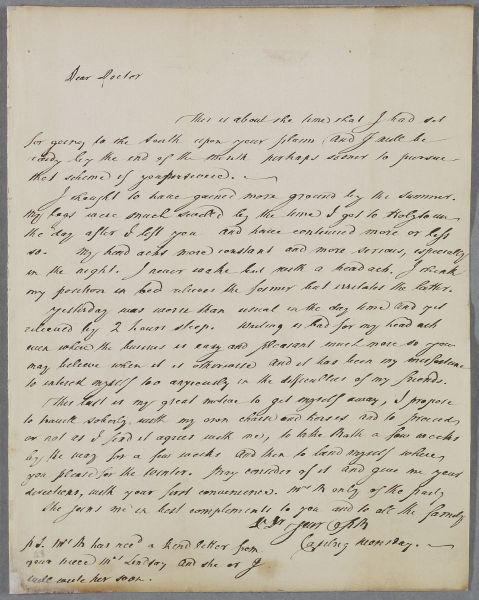 Dear Doctor
This is about the time that I had set
for going to the South upon your plann and I will be
ready by the end of the month perhaps sooner to pursue
that scheme if you persevere. —
I thought to have gained more ground by the summer.
My legs were much swelled by the time I got to
the day after I left you and have continued more or less
so. My head achs more constant and more serious, especially
in the night. I never wake but with a headach. I think
my position in bed relieves the former but irritates the latter.
yesterday was worse than usual in the day time and yet
relieved by 2 hours sleep. Writing is bad for my head ach
even where the business is easy and pleasant much more so you
may believe when it is otherwise and it has been my misfortune
to interest myself too anxiously in the difficulties of my friends.
This last is my great motive to get myself away, I propose
to travele soberly with my own chaise and horses and to proceed
or not as I find it agrees with me, to take Bath a few weeks
by the way for a few weeks and then to bend myself where
you please for the Winter. Pray consider of it and give me your
directions, with your first convenience. Mrs M only of the party
She joins me in best complements to you and to all the family
Monday. —
P.S. Mrs M has rec'd a kind letter from
your niece Mrs Lindsay and she or I
will write her soon.